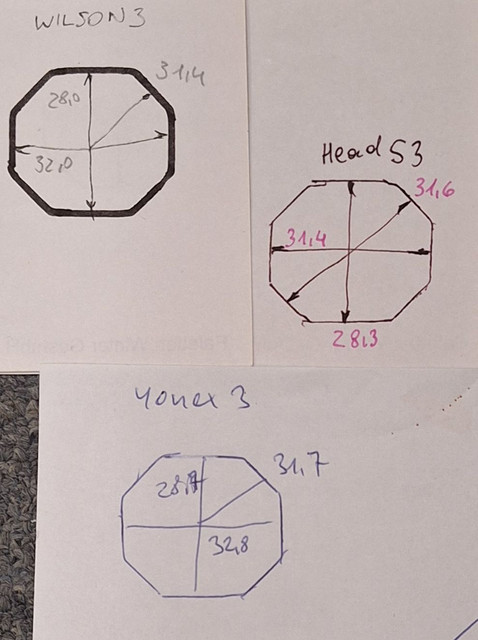 WILSON 3
31,4
28,0
32,0
Head S3
31,6
31,4
28,3
Yonex 3
31,7
32,8